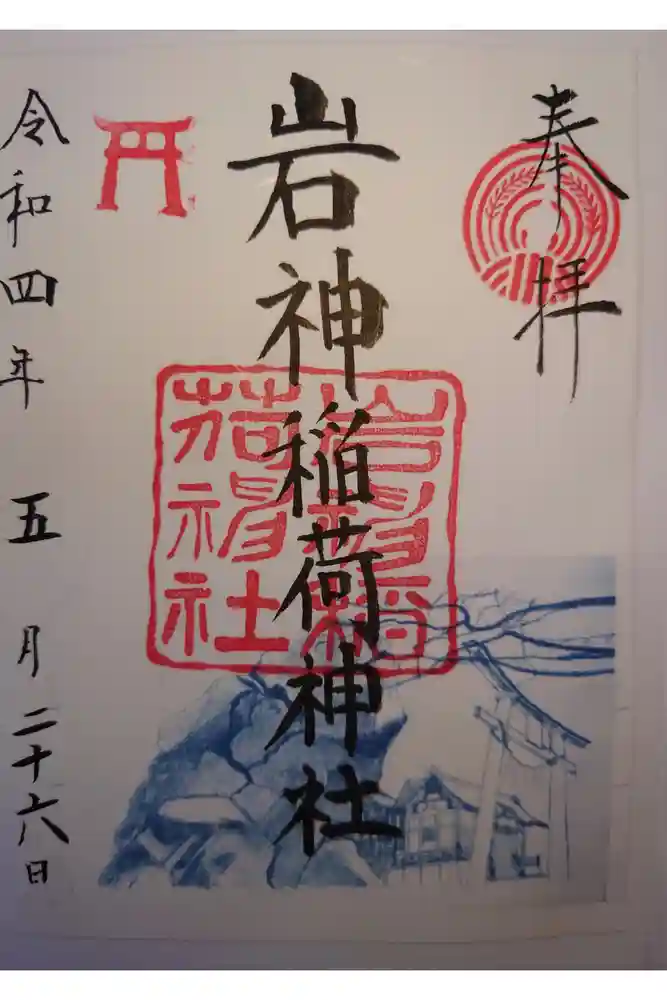 奉拝
岩神稲荷神社
岩神稲
荷神社
令和四年 五 月二十六日